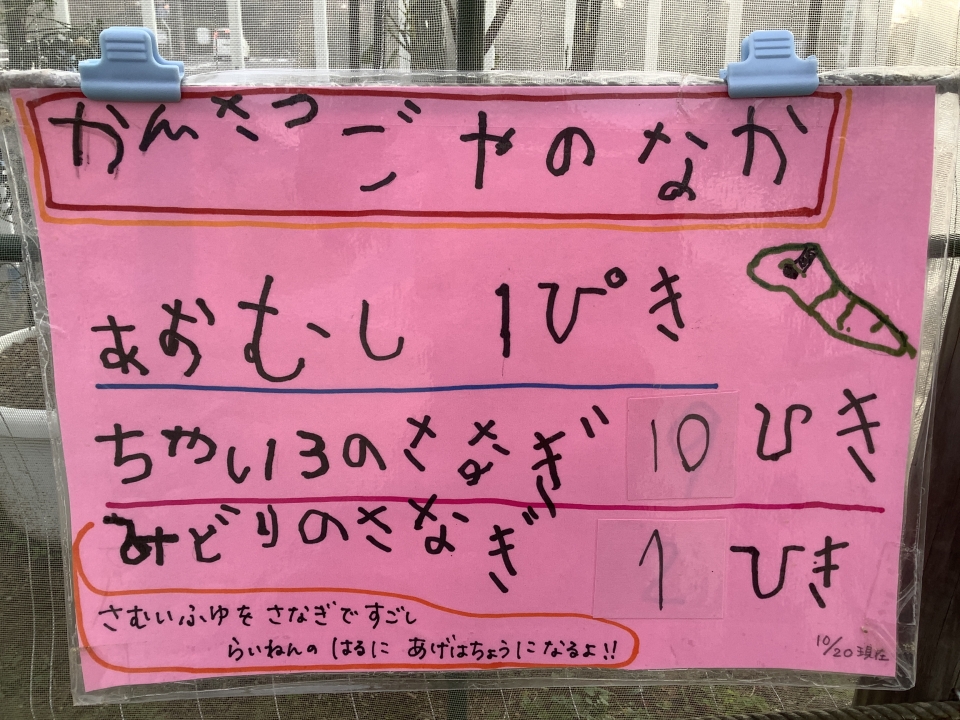 かんさつごやのなか
あおむし 1ぴき
ちやいろのさなぎ 10ひき
みどりのさなぎ 1ひき
さむいふゆを さなぎですごし
らいねんの はるに あげはちょうになるよ!!
10/20 現在